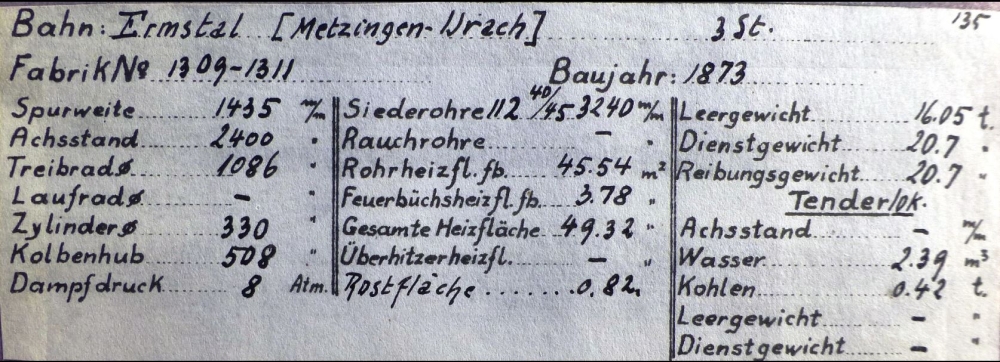 135
Bahn: Ermstal [Metzingen-Urach] 3 St.
Fabrik № 1309-1311 Baujahr: 1873
Spurweite 1435 m/m
Achsstand 2400 "
Treibradø 1086 "
Laufradø – "
Zylinderø 330 "
Kolbenhub 508 "
Dampfdruck 8 Atm.
Siederohre 112 40/45 3240 m/m
Rauchrohre – "
Rohrheizfl. fb. 45.54 m²
Feuerbüchsheizfl. fb. 3.78 "
Gesamte Heizfläche 49.32 "
Überhitzerheizfl. – "
Rostfläche 0.82 "
Leergewicht 16.05 t.
Dienstgewicht 20.7 "
Reibungsgewicht 20.7 "
Tender/ok.
Achsstand – m/m
Wasser 2.39 m³
Kohlen 0.42 t.
Leergewicht – "
Dienstgewicht – "